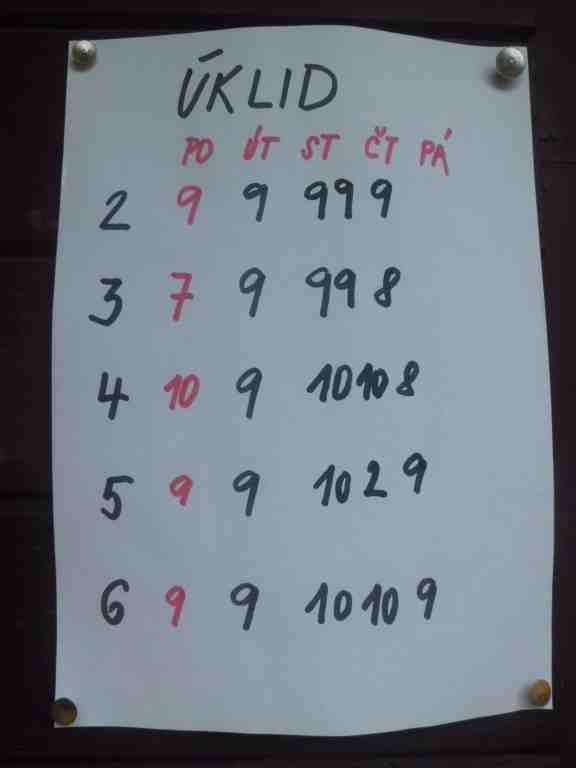 ÚKLID
PO ÚT ST ČT PÁ
2 9 9 9 9 9
3 7 9 9 9 8
4 10 9 10 10 8
5 9 9 10 2 9
6 9 9 10 10 9